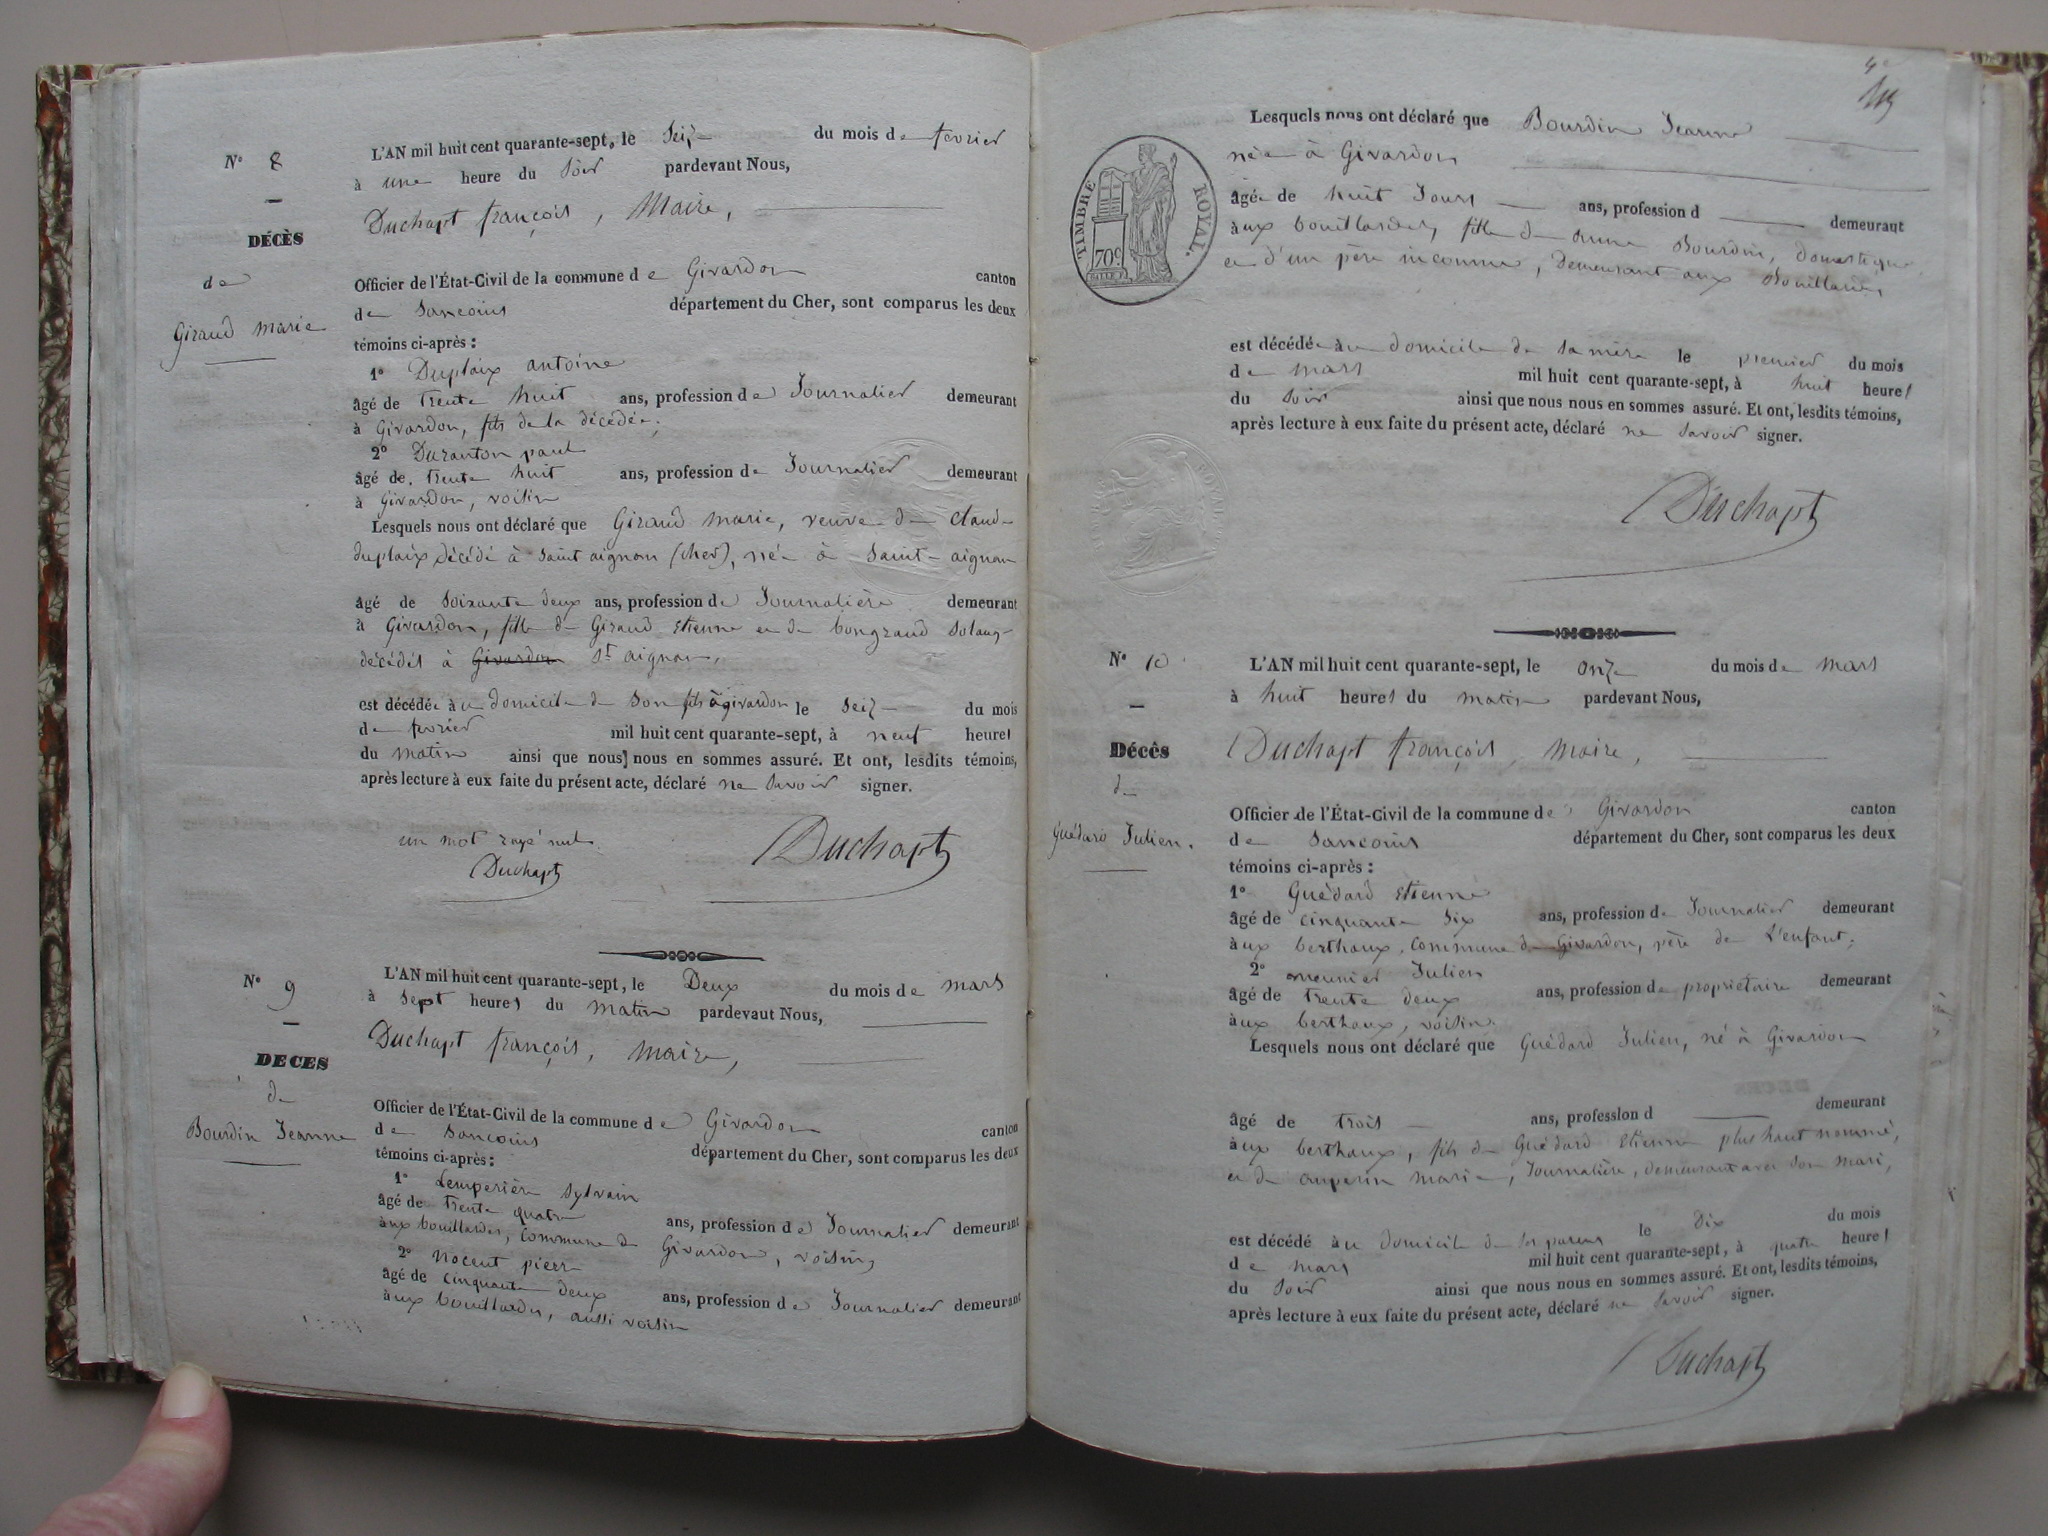 N° 8
DÉCÈS
de
Giraud marie
L'AN mil huit cent quarante-sept, le Seize du mois de fevrier
à une heure du Soir pardevant Nous,
Duchapt françois, Maire,
Officier de l'État-Civil de la commune de Givardon canton
de Sancoins département du Cher, sont comparus les deux
témoins ci-après :
1° Duplaix antoine
âgé de trente huit ans, profession de Journalier demeurant
à Givardon, fils de la décédée;
2° Duranton paul
âgé de trente huit ans, profession de Journalier demeurant
à Givardon, voisin
Lesquels nous ont déclaré que Giraud marie, veuve de Claude
duplaix décédé à Saint aignan (cher), née à Saint-aignan
âgé de Soixante deux ans, profession de Journalière demeurant
à Givardon, fille de Giraud Etienne et de bongrand Solange
décédés à Givardon St aignan,
est décédée au domicile de Son fils à givardon le Seize du mois
de fevrier mil huit cent quarante-sept, à neuf heures
du matin ainsi que nous nous en sommes assuré. Et ont, lesdits témoins,
après lecture à eux faite du présent acte, déclaré ne Savoir signer.
un mot rayé nul
Duchapt
Duchapt
N° 9
DECES
de
Bourdin Jeanne
L'AN mil huit cent quarante-sept, le Deux du mois de mars
à Sept heures du matin pardevant Nous,
Duchapt françois, maire,
Officier de l'État-Civil de la commune de Givardon canton
de Sancoins département du Cher, sont comparus les deux
témoins ci-après :
1° Lemperière Sylvain
âgé de trente quatre ans, profession de Journalier demeurant
aux bouillardes, commune de Givardon, voisin,
2° nocent pierre
âgé de cinquante deux ans, profession de Journalier demeurant
aux bouillardes, aussi voisin
4e
TIMBRE ROYAL.
70c
Lesquels nous ont déclaré que Bourdin Jeanne
née à Givardon
âgée de huit Jours ans, profession d demeurant
aux bouillardes, fille de anne Bourdin, domestique
et d'un père inconnu, demeurant aux Bouillardes
est décédée au domicile de Sa mère le premier du mois
de mars mil huit cent quarante-sept, à huit heures
du Soir ainsi que nous nous en sommes assuré. Et ont, lesdits témoins,
après lecture à eux faite du présent acte, déclaré ne Savoir signer.
Duchapt
N° 10
Décès
de
Guédard Julien.
L'AN mil huit cent quarante-sept, le onze du mois de mars
à huit heures du matin pardevant Nous,
Duchapt françois, Maire,
Officier de l'État-Civil de la commune de Givardon canton
de Sancoins département du Cher, sont comparus les deux
témoins ci-après :
1° Guédard Etienne
âgé de cinquante Six ans, profession de Journalier demeurant
aux berthaux, commune de Givardon, père de L'enfant;
2° meunier Julien
âgé de trente deux ans, profession de propriétaire demeurant
aux berthaux, voisin
Lesquels nous ont déclaré que Guédard Julien, né à Givardon
âgé de trois ans, profession d demeurant
aux berthaux, fils de Guédard Etienne plus haut nommé,
et de auperin marie, Journalière, demeurant avec Son mari,
est décédé au domicile de Ses parens le Dix du mois
de mars mil huit cent quarante-sept, à quatre heures
du Soir ainsi que nous nous en sommes assuré. Et ont, lesdits témoins,
après lecture à eux faite du présent acte, déclaré ne Savoir signer.
Duchapt